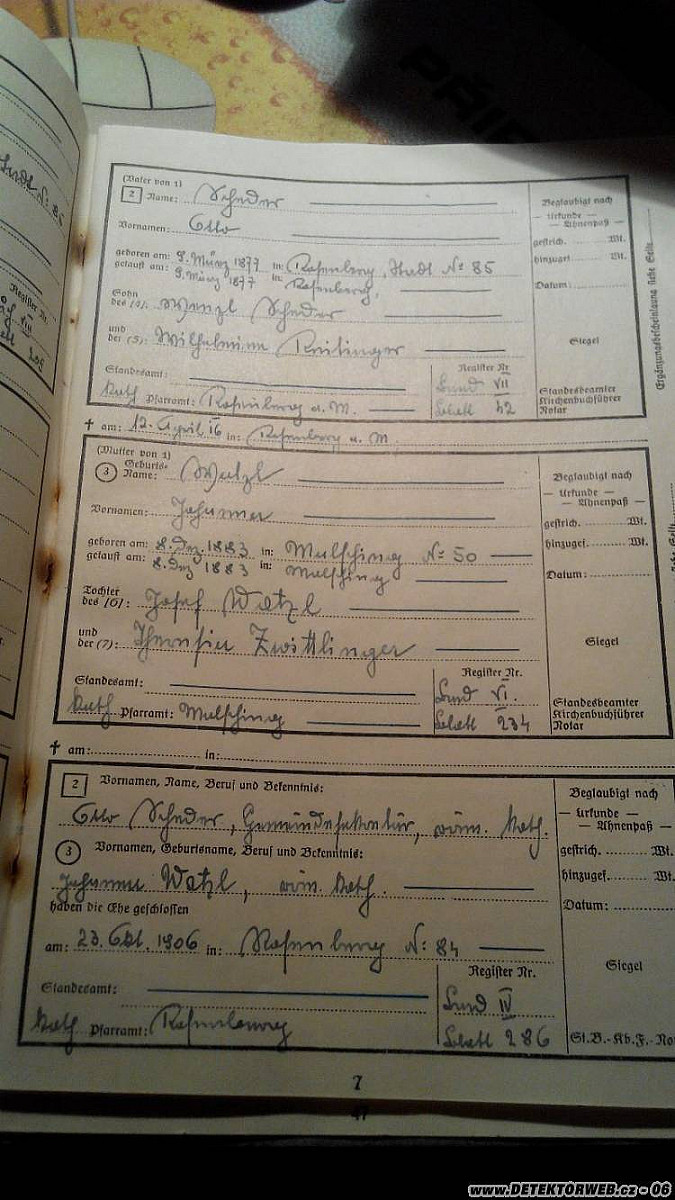 PŘIE
(Vater von 1)
2 Name: Scheder
Vornamen: Otto
geboren am: 9. März 1877 in: Rosenberg, Stadt No 85
getauft am: 9. März 1877 in: Rosenberg,
Sohn
des (4): Wenzl Scheder
und
der (5): Wilhelmine Reitinger
Standesamt:
Register Nr
Kath Pfarramt: Rosenberg a. M.
Band VII
Blatt 42
Beglaubigt nach
— Urkunde —
— Ahnenpaß —
gestrich. Wt.
hinzugef. Wt.
Datum:
Siegel
Standesbeamter
Kirchenbuchführer
Notar
✝ am: 12. April 16 in: Rosenberg a. M.
(Mutter von 1)
3 Geburts-
Name: Watzl
Vornamen: Johanna
geboren am: 8. Dez. 1883 in: Malsching No 50
getauft am: 8. Dez 1883 in: Malsching
Tochter
des (6): Josef Watzl
und
der (7): Theresia Zwittlinger
Standesamt:
Register Nr.
Kath Pfarramt: Malsching
Band VI.
Blatt 234
Beglaubigt nach
— Urkunde —
— Ahnenpaß —
gestrich. Wt.
hinzugef. Wt.
Datum:
Siegel
Standesbeamter
Kirchenbuchführer
Notar
✝ am: in:
2 Vornamen, Name, Beruf und Bekenntnis:
Otto Scheder, Gemeindesekretär, röm. kath.
3 Vornamen, Geburtsname, Beruf und Bekenntnis:
Johanna Watzl, röm. kath.
haben die Ehe geschlossen
am: 23. Okt. 1906 in: Rosenberg N: 84
Standesamt:
Register Nr.
Kath Pfarramt: Rosenberg
Band IV
Blatt 286
Beglaubigt nach
— Urkunde —
— Ahnenpaß —
gestrich. Wt.
hinzugef. Wt.
Datum:
Siegel
St.B.-Kb.F.-No
7
www.DETEKTORWEB.cz - 06